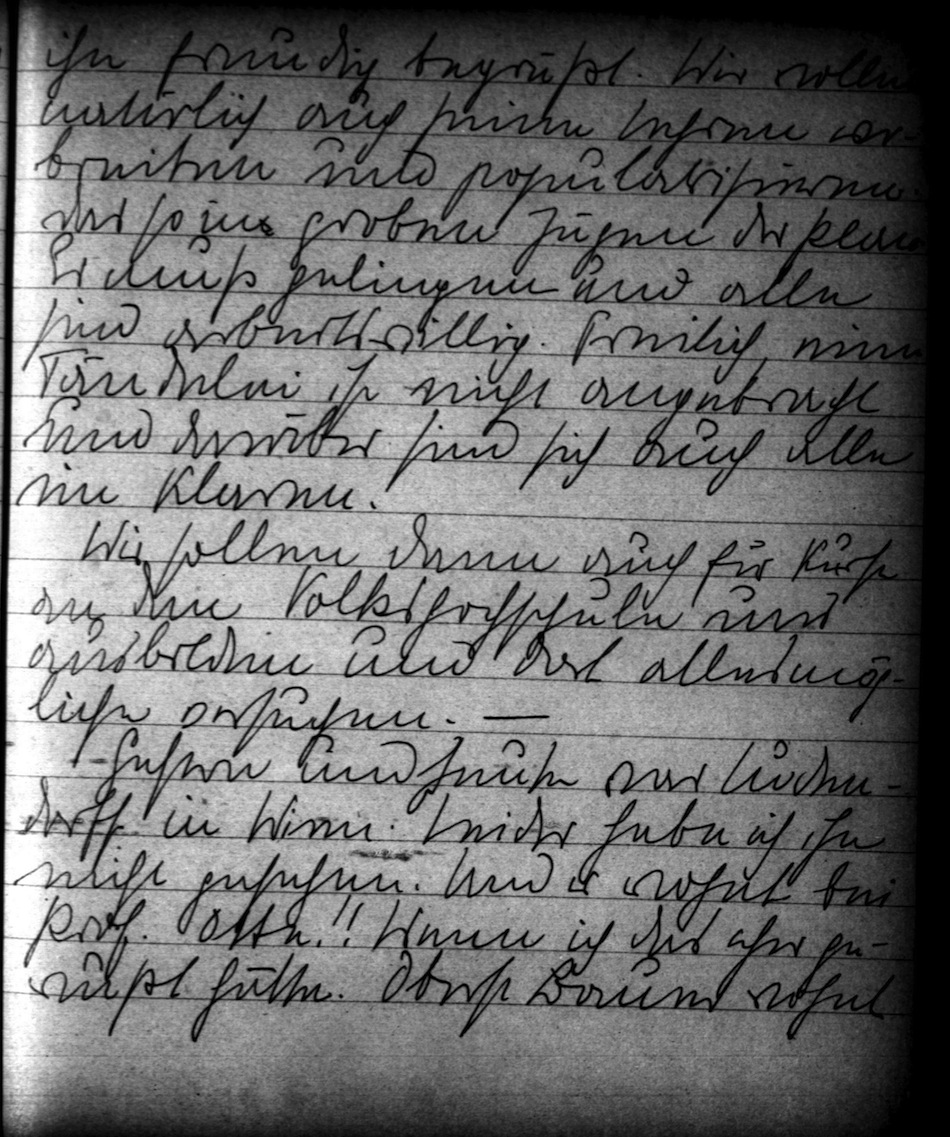 ihn freudig begrüßt. Wir wollen
natürlich auch seine Lehren ver-
breiten und popularisieren.
das so in groben Zügen der Plan
Er muß gelingen und alle
sind arbeitswillig. Freilich, eine
Tändelei ist nicht angebracht
und darüber sind sich auch alle
im Klaren.
Wir sollen dann auch für Kurse
an den Volkshochschulen uns
ausbilden und dort alles mög-
liche versuchen. —
Gestern und heute war Luden-
dorff in Wien. Leider habe ich ihn
nicht gesehen. Und er wohnt bei
Prof. Otte!! Wenn ich das eher ge-
wußt hätte. Oberst Bauer wohnt